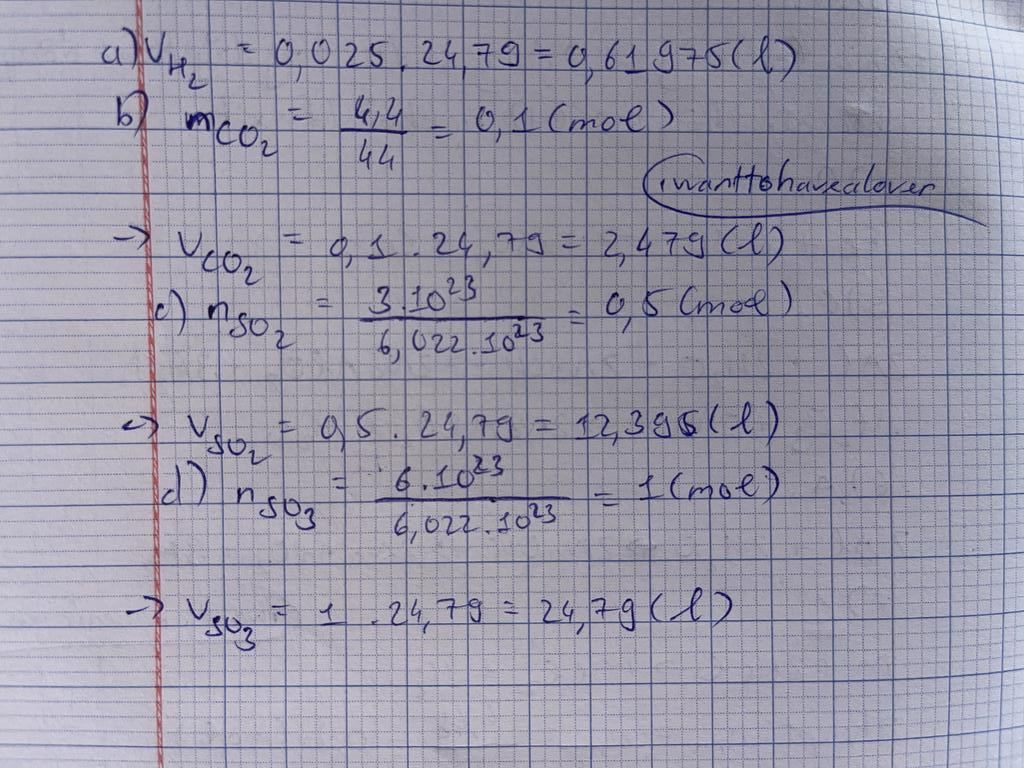 a) V_H₂ = 0,025 . 24,79 = 0,61975 (l)
b) m_CO₂ = 4,4 / 44 = 0,1 (mol)
iwanttohavealover
-> V_CO₂ = 0,1 . 24,79 = 2,479 (l)
c) n_SO₂ = 3.10²³ / 6,022.10²³ = 0,5 (mol)
-> V_SO₂ = 0,5 . 24,79 = 12,395 (l)
d) n_SO₃ = 6.10²³ / 6,022.10²³ = 1 (mol)
-> V_SO₃ = 1 . 24,79 = 24,79 (l)